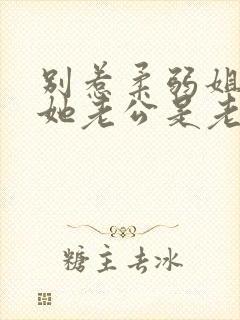 别惹柔弱姐
她老公是老
糖主去冰